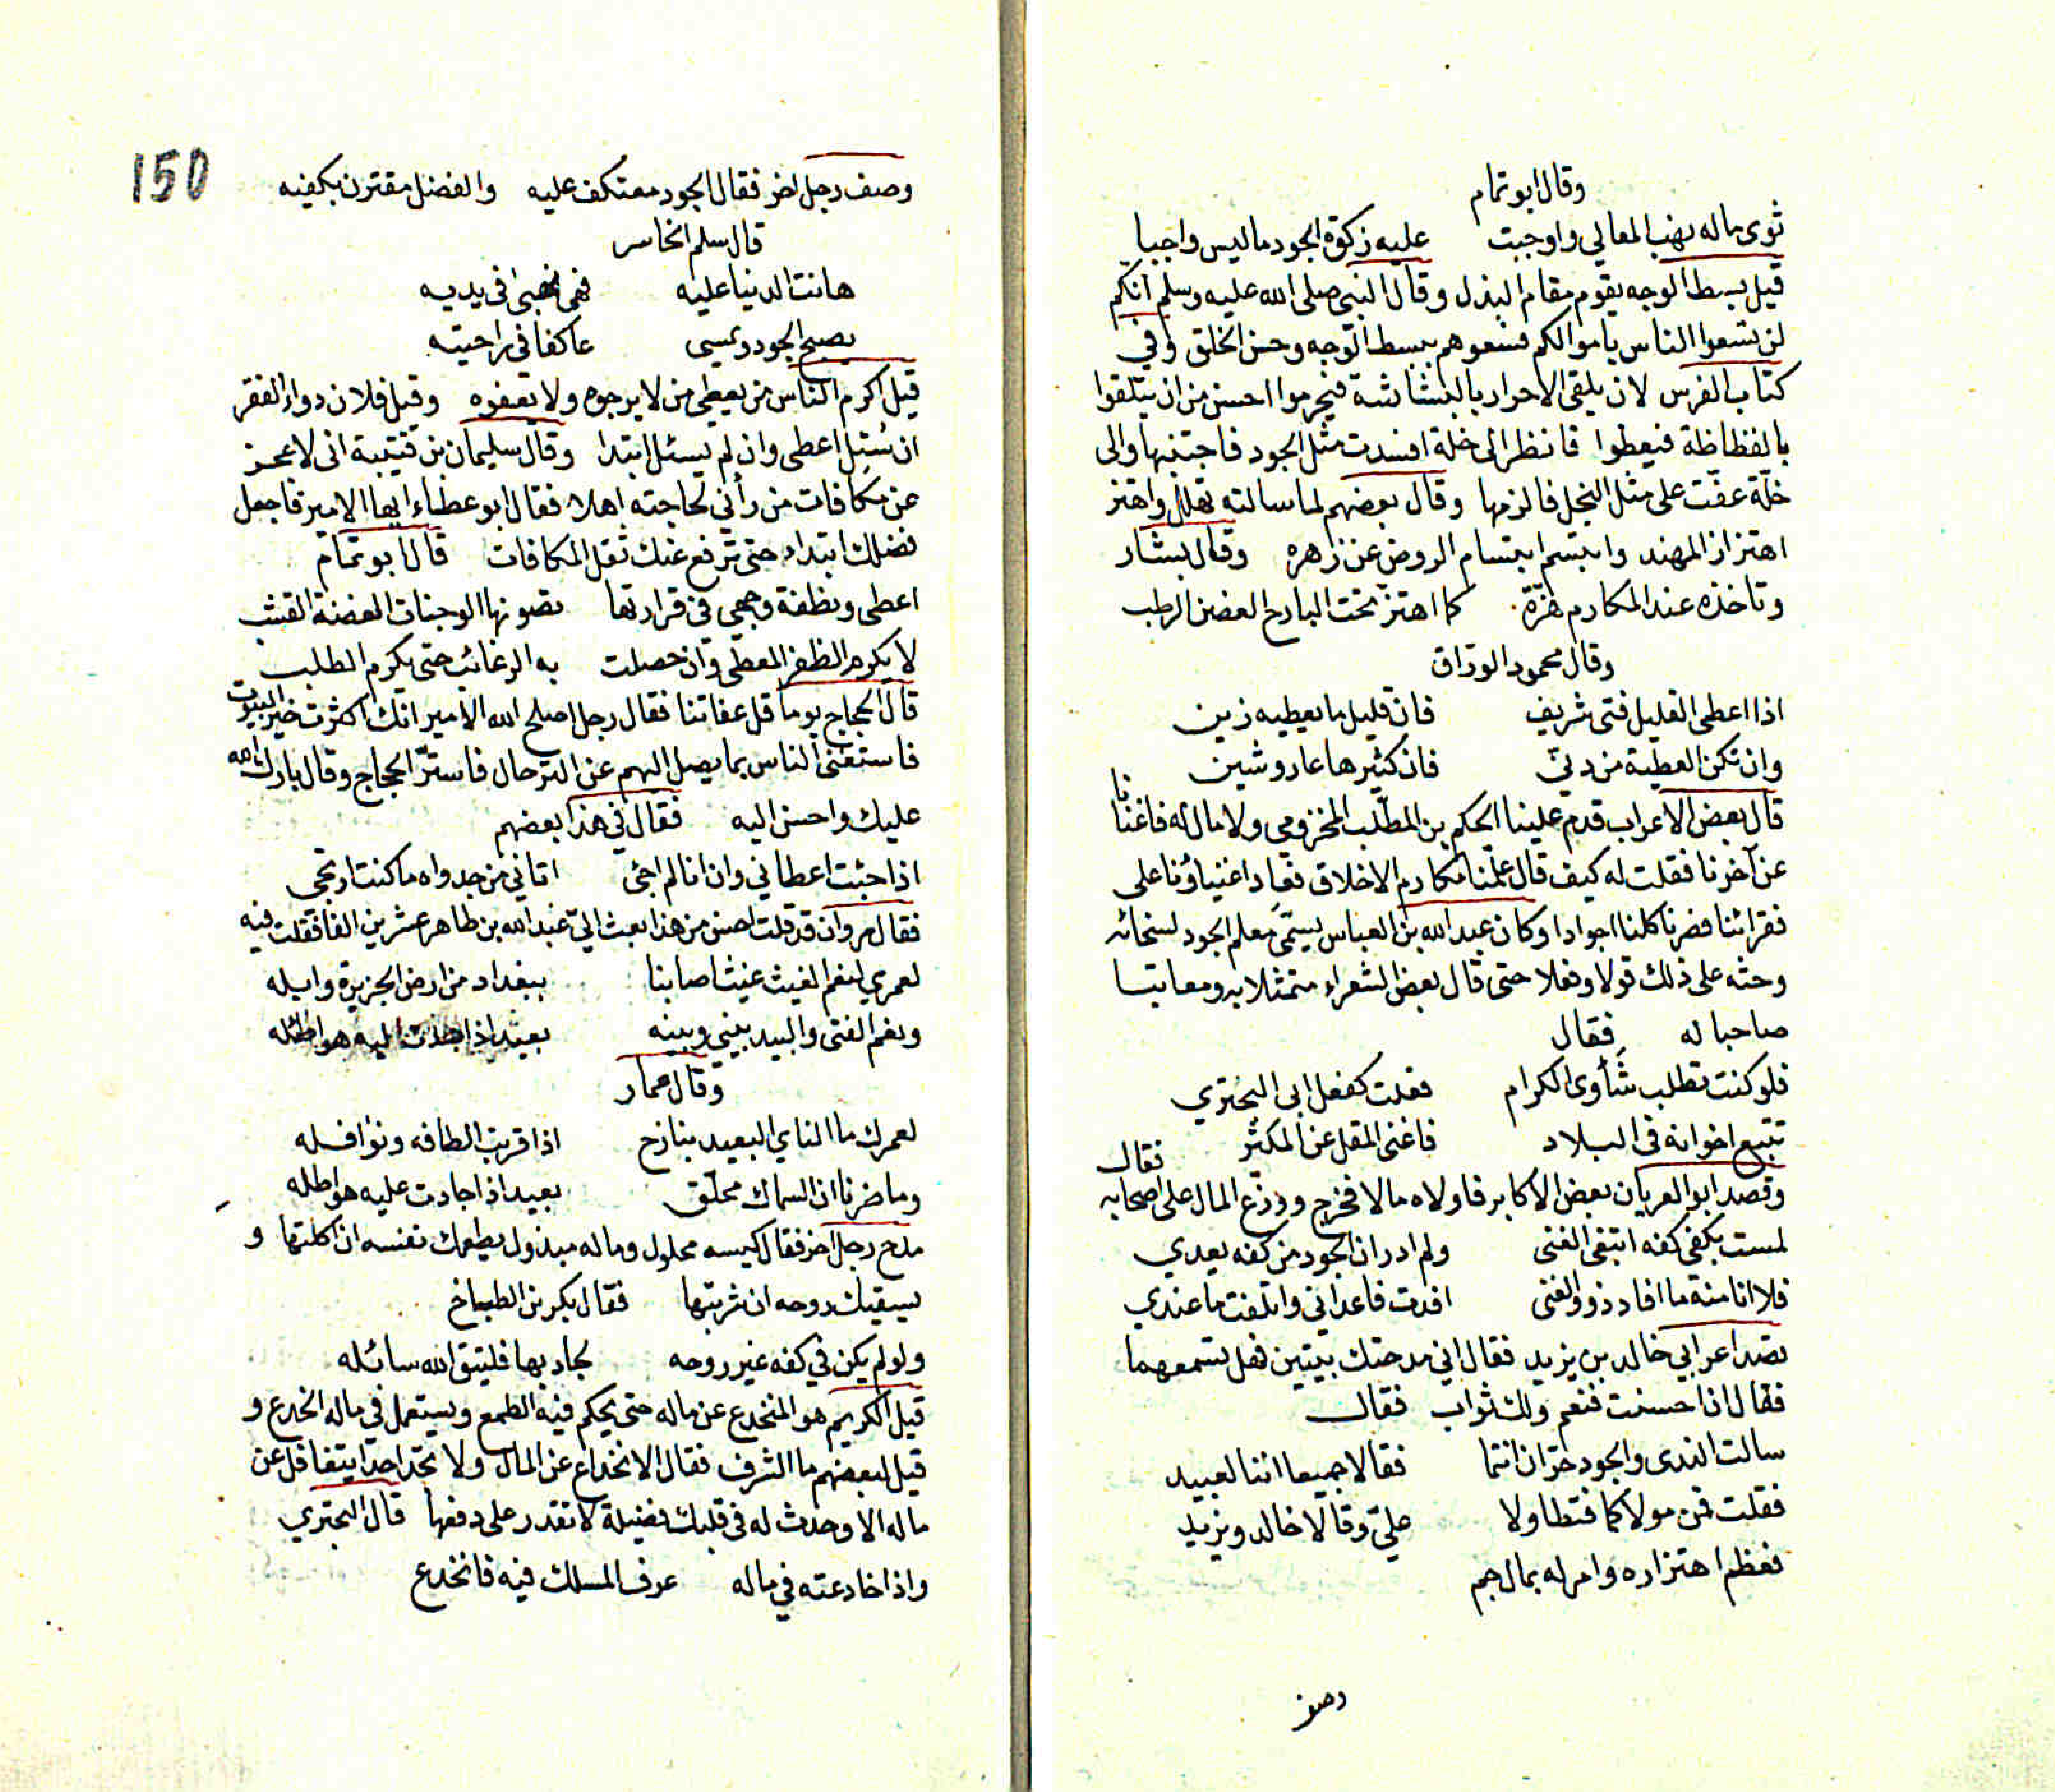 وقال ابو تمام
ثوى ماله نهب المعالي واوجبت عليه زكوة الجود ما ليس واجبا
قيل بسط الوجه يقوم مقام البذل وقال النبي صلى الله عليه وسلم انكم
لن تسعوا الناس باموالكم فسعوهم ببسط الوجه وحسن الخلق وفي
كتاب الفرس لان يلقى الاحرار بالبشاشة فيحرموا احسن من ان يتلقوا
بالفظاظة فيعطوا فانظر الى خلة افسدت مثل الجود فاجتنبها والى
خلة عفت على مثل البخل فالزمها وقال بعضهم لما سالته تهلل واهتز
اهتزاز المهند وابتسم ابتسام الروض عن زاهره وقال بشار
وتاخذه عند المكارم هزة كما اهتز تحت البارح الغصن الرطب
وقال محمود الوراق
اذا اعطى القليل فتى شريف فان قليل ما يعطيه زين
وان تكن العطية من دني فان كثيرها عار وشين
قال بعض الاعراب قدم علينا الحكم بن المطلب المخزومي ولا مال له فاغنانا
عن آخرنا فقلت له كيف قال علمنا مكارم الاخلاق فعاد اغنياؤنا على
فقرائنا فصرنا كلنا اجوادا وكان عبد الله بن العباس يسمى معلم الجود لسخائه
وحثه على ذلك قولا وفعلا حتى قال بعض الشعراء متمثلا به ومعاتبا
صاحبا له فقال
فلو كنت تطلب شأوى الكرام فعلت كفعل ابى البختري
تتبع اخوانه في البلاد فاغنى المقل عن المكثر
وقصد ابو العريان بعض الاكابر فاولاه مالا فخرج ووزع المال على اصحابه فقال
لمست بكفى كفه ابتغى الغنى ولم ادر ان الجود من كفه يعدي
فلا انا منه ما افاد ذوو الغنى افدت فاعداني واتلفت ما عندي
قصد اعرابي خالد بن يزيد فقال اني مدحتك ببيتين فهل تسمعهما
فقال اذا احسنت فنعم ولك ثواب فقال
سالت الندى والجود حران انتما فقالا جميعا اننا لعبيد
فقلت فمن مولاكما فتطاولا علي وقالا خالد ويزيد
فعظم اهتزازه وامر له بمال جم
وصف
150
وصف رجل اخر فقال الجود معتكف عليه والفضل مقترن بكفيه
قال سلم الخاسر
هانت الدنيا عليه فهى نهبى في يديه
يصبح الجود ويمسي عاكفا في راحتيه
قيل اكرم الناس من يعطي من لا يرجوه ولا يعفوه وقيل فلان دواء الفقر
ان سئل اعطى وان لم يسئل ابتدا وقال سليمان بن قتيبة انى لاعجز
عن مكافات من رأني لحاجته اهلا فقال ابو عطاء ايها الامير فاجعل
فضلك ابتداء حتى ترفع عنك ثقل المكافات قال ابو تمام
اعطى ونطفة وجهي في قرارتها تصونها الوجنات الغضة القشب
لا يكرم الظفر المعطى وان حصلت به الرغائب حتى يكرم الطلب
قال الحجاج يوما قل عفاتنا فقال رجل اصلح الله الامير انك اكثرت خير البيوت
فاستغنى الناس بما يصل اليهم عن الترحال فاستر الحجاج وقال بارك الله
عليك واحسن اليه فقال في هذا بعضهم
اذا جئت اعطاني وان انا لم اجئ اتاني من جدواه ما كنت ارتجي
فقال مروان قد قلت احسن من هذا بعث الي عبد الله بن طاهر عشرين الفا فقلت فيه
لعمري لنعم الغيث غيثا صابنا ببغداد من ارض الجزيرة وابله
ونعم الفتى والبيد بيني وبينه بعيد اذا
وقال عمار
لعمرك ما الناي البعيد بنازح اذا قربت الطافه ونوافله
وما ضرنا ان السماك محلق بعيد اذا جادت عليه هواطله
مدح رجل اخر فقال كيسه محلول وماله مبذول يطعمك نفسه ان اكلتها و
يسقيك روحه ان شربتها فقال بكر بن الطباخ
ولو لم يكن في كفه غير روحه لجاد بها فليتق الله سائله
قيل الكريم هو المنخدع عن ماله حتى يحكم فيه الطمع ويستعمل في ماله الخدع و
قيل لبعضهم ما الشرف فقال الانخداع عن المال ولا تجد احدا يتغافل عن
ماله الا وحدث له في قلبك فضيلة لا تقدر على دفعها قال البحتري
واذا خادعته في ماله عرف المسلك فيه فانخدع